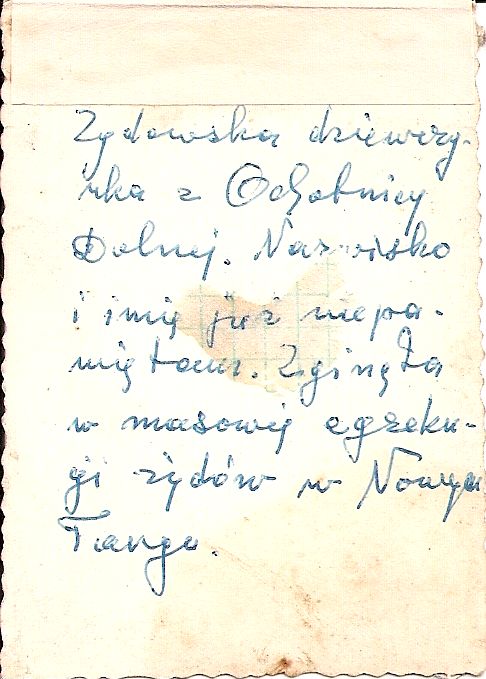 Żydowska dziewczy-
nka z Ochotnicy
Dolnej. Nazwisko
i imię już niepa-
miętam. Zginęła
w masowej egzeku-
cji żydów w Nowym
Targu.